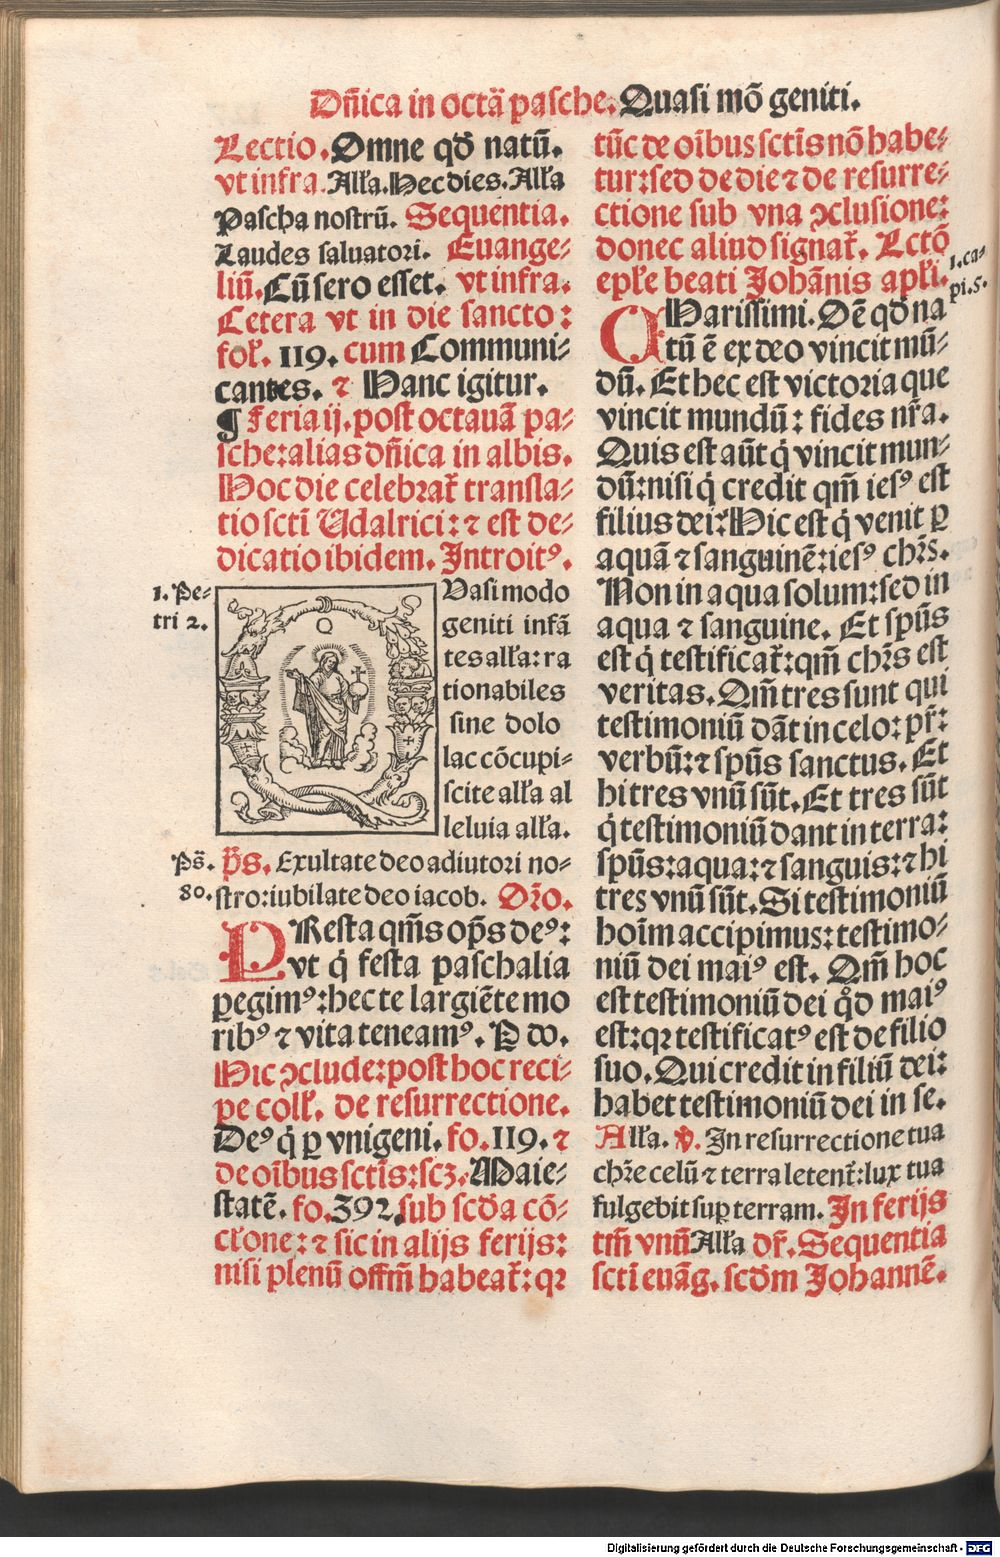 Dñica in octã pasche. Quasi mõ geniti.
Lectio. Omne qď natũ.
vt infra. Alla. Hec dies. Alla
Pascha nostrũ. Sequentia.
Laudes saluatori. Euange-
liũ. Cũ sero esset. vt infra.
Cetera vt in die sancto:
fol. 119. cum Communi-
cantes. ⁊ Hanc igitur.
¶ Feria ij. post octauã pa-
sche: alias dñica in albis.
Hoc die celebrat̃ transla-
tio scti Udalrici: ⁊ est de-
dicatio ibidem. Introitꝰ.
1. Pe-
tri 2.
Q
Vasi modo
geniti infã
tes alla: ra
tionabiles
sine dolo
lac cõcupi-
scite alla al
leluia alla.
Ps̃.
80.
p̃s. Exultate deo adiutori no-
stro: iubilate deo iacob. Or̃o.
PResta qm̃s op̃s deꝰ:
vt q̇ festa paschalia
ꝑegimꝰ: hec te largiẽte mo
ribꝰ ⁊ vita teneamꝰ. P do.
Hic ↄclude: post hoc reci-
pe coll. de resurrectione.
Deꝰ q̇ ꝑ vnigeni. fo. 119. ⁊
de oĩbus sctĩs: scꝫ. Maie-
statẽ. fo. 392. sub scďa cõ-
cl̃one: ⁊ sic in alijs ferijs:
nisi plenũ offm̃ habeat̃: qꝛ
tũc de oĩbus sctĩs nõ habe-
tur: sed de die ⁊ de resurre-
ctione sub vna ↄclusione:
donec aliud signat̃. Lctõ
epl̃e beati Johãnis apl̃i.
1. ca-
pi. 5.
CHarissimi. Oẽ qď na
tũ ẽ ex deo vincit mũ-
dũ. Et hec est victoria que
vincit mundũ: fides nr̃a.
Quis est aũt q̇ vincit mun-
dũ: nisi q̇ credit qm̃ iesꝰ est
filius dei? Hic est q̇ venit ꝑ
aquã ⁊ sanguinẽ: iesꝰ chr̃s.
Non in aqua solum: sed in
aqua ⁊ sanguine. Et sp̃us
est q̇ testificat̃: qm̃ chr̃s est
veritas. Qm̃ tres sunt qui
testimoniũ dãt in celo: pr̃:
verbũ: ⁊ sp̃us sanctus. Et
hi tres vnũ sũt. Et tres sũt
q̇ testimoniũ dant in terra:
sp̃us: aqua: ⁊ sanguis: ⁊ hi
tres vnũ sũt. Si testimoniũ
hoĩm accipimus: testimo-
niũ dei maiꝰ est. Qm̃ hoc
est testimoniũ dei qd̃ maiꝰ
est: qꝛ testificatꝰ est de filio
suo. Qui credit in filiũ dei:
habet testimoniũ dei in se.
Alla. ℣. In resurrectione tua
chr̃e celũ ⁊ terra letent̃: lux tua
fulgebit suꝑ terram. In ferijs
tm̃ vnũ Alla dr̃. Sequentia
scti euãg. scďm Johannẽ.
Digitalisierung gefördert durch die Deutsche Forschungsgemeinschaft - DFG